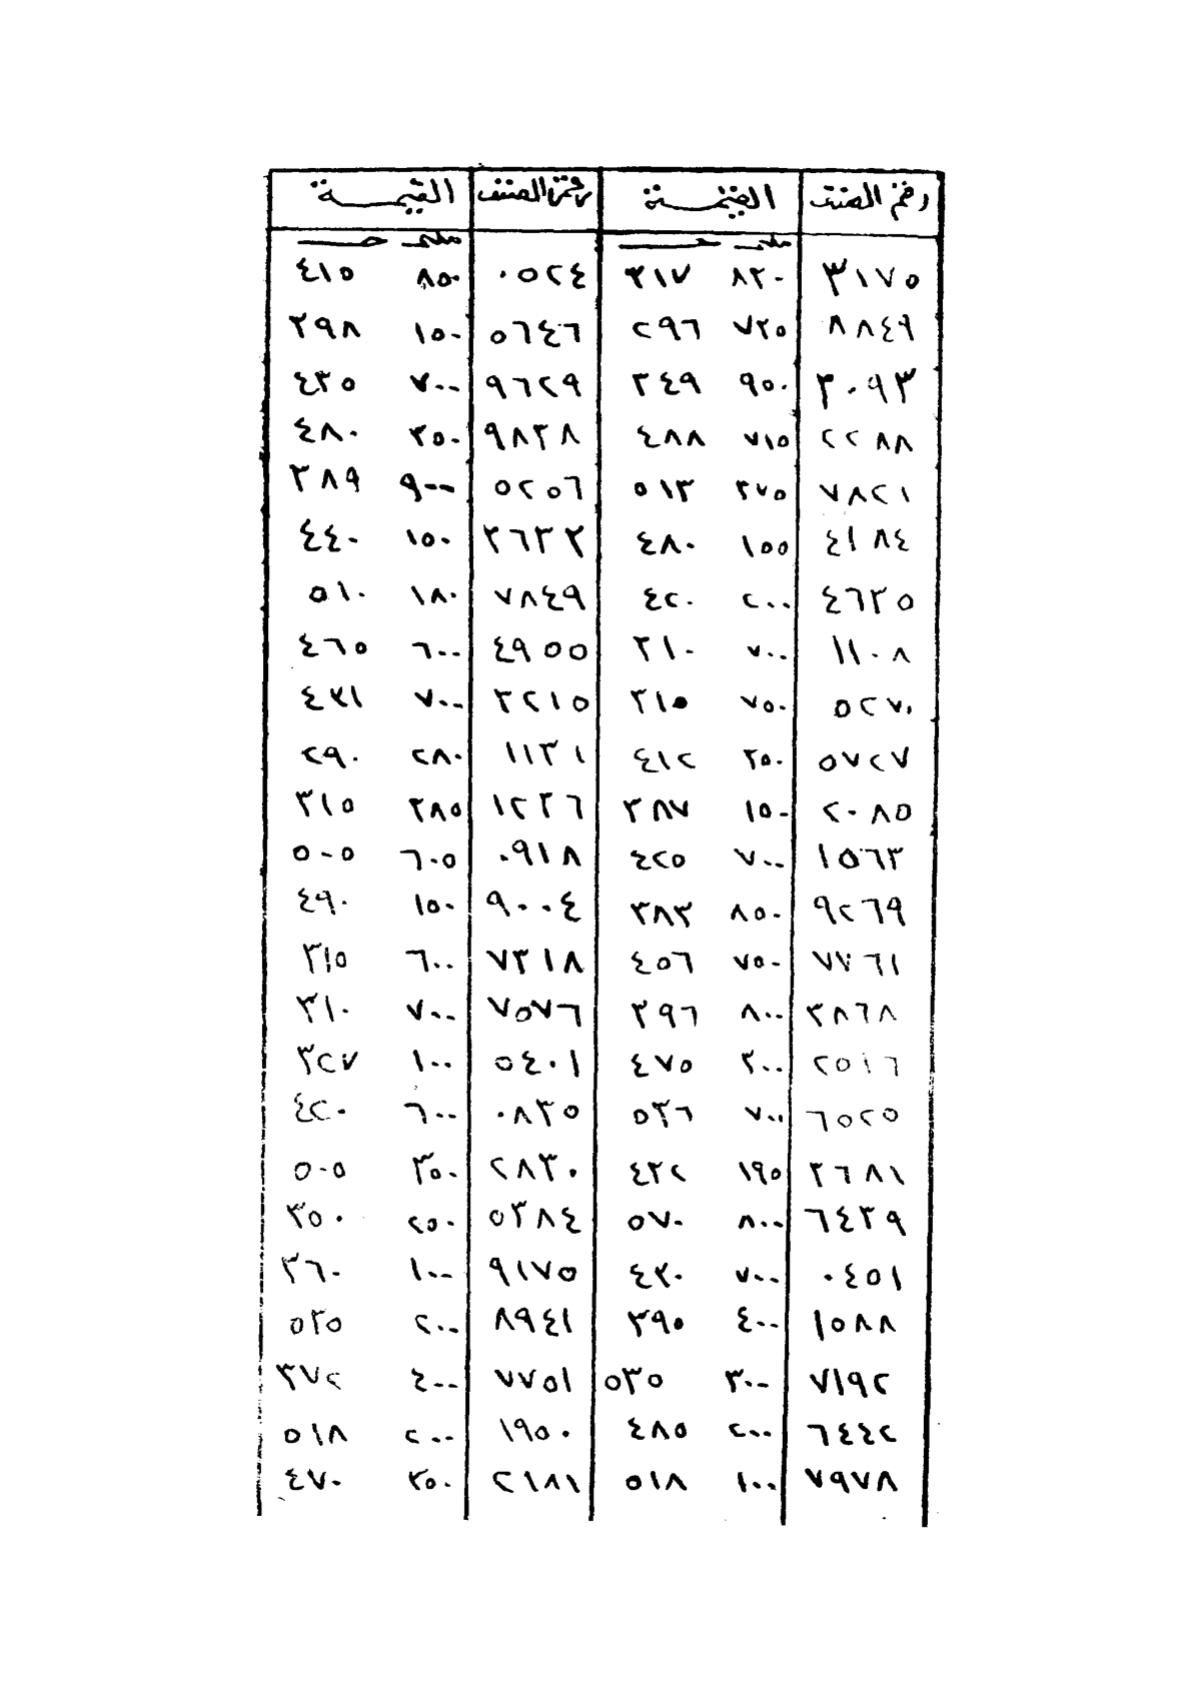 رقم الصنف القيمة رقم الصنف القيمة
مليم جـ مليم جـ
٣١٧٥ ٨٣٠ ٣١٧ ٠٥٢٤ ٨٥٠ ٤١٥
٨٨٤٩ ٧٣٥ ٢٩٦ ٥٦٤٦ ١٥٠ ٣٩٨
٣٠٩٣ ٩٥٠ ٣٤٩ ٩٦٢٩ ٧٠٠ ٤٣٥
٢٢٨٨ ٧١٥ ٤٨٨ ٩٨٣٨ ٣٥٠ ٤٨٠
٧٨٢١ ٣٧٥ ٥١٣ ٥٢٥٦ ٩٠٠ ٣٨٩
٤١٨٤ ١٥٥ ٤٨٠ ٣٦٣٣ ١٥٠ ٤٤٠
٤٦٣٥ ٢٠٠ ٤٢٠ ٧٨٤٩ ١٨٠ ٥١٠
١١٠٨ ٧٠٠ ٣١٠ ٤٩٥٥ ٦٠٠ ٤٦٥
٥٢٧٠ ٧٥٠ ٣١٥ ٣٢١٥ ٧٠٠ ٤٣١
٥٧٢٧ ٣٥٠ ٤١٢ ١١٣١ ٢٨٠ ٢٩٠
٢٠٨٥ ١٥٠ ٣٨٧ ١٢٣٦ ٣٨٥ ٣١٥
١٥٦٣ ٧٠٠ ٤٢٥ ٠٩١٨ ٦٠٥ ٥٠٥
٩٢٦٩ ٨٥٠ ٣٨٣ ٩٠٠٤ ١٥٠ ٤٩٠
٧٧٦١ ٧٥٠ ٤٥٦ ٧٣١٨ ٦٠٠ ٣١٥
٣٨٦٨ ٨٠٠ ٣٩٦ ٧٥٧٦ ٧٠٠ ٣١٠
٢٥١٦ ٣٠٠ ٤٧٥ ٥٤٠١ ١٠٠ ٣٢٧
٦٥٢٥ ٧٠٠ ٥٣٦ ٠٨٣٥ ٦٠٠ ٤٢٠
٣٦٨١ ١٩٥ ٤٣٢ ٢٨٣٠ ٣٥٠ ٥٠٥
٦٤٣٩ ٨٠٠ ٥٧٠ ٥٣٨٤ ٢٥٠ ٣٥٠
٠٤٥١ ٧٠٠ ٤٣٠ ٩١٧٥ ١٠٠ ٣٦٠
١٥٨٨ ٤٠٠ ٣٩٥ ٨٩٤١ ٢٠٠ ٥٣٥
٧١٩٢ ٣٠٠ ٥٣٥ ٧٧٥١ ٤٠٠ ٣٧٢
٦٤٤٢ ٢٠٠ ٤٨٥ ١٩٥٠ ٢٠٠ ٥١٨
٧٩٧٨ ١٠٠ ٥١٨ ٢١٨١ ٣٥٠ ٤٧٠